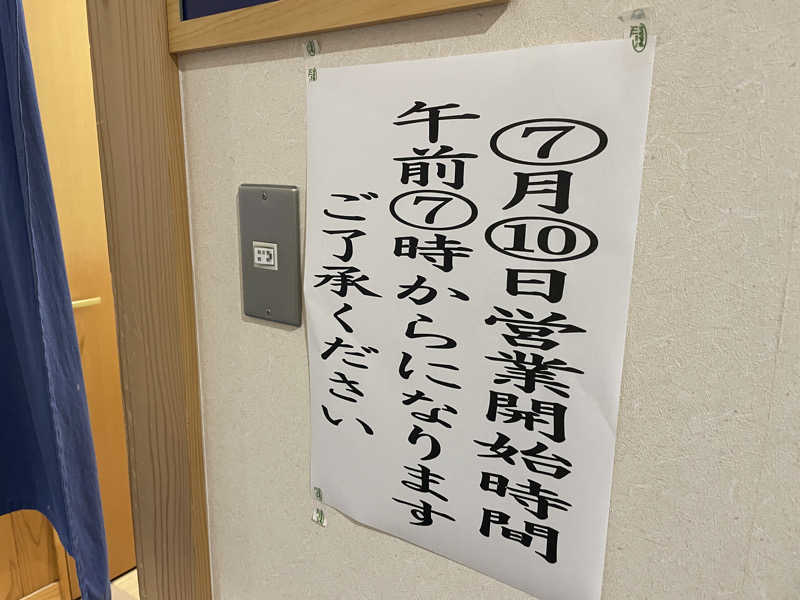 ⑦月⑩日営業開始時間
午前⑦時からになります
ご了承ください